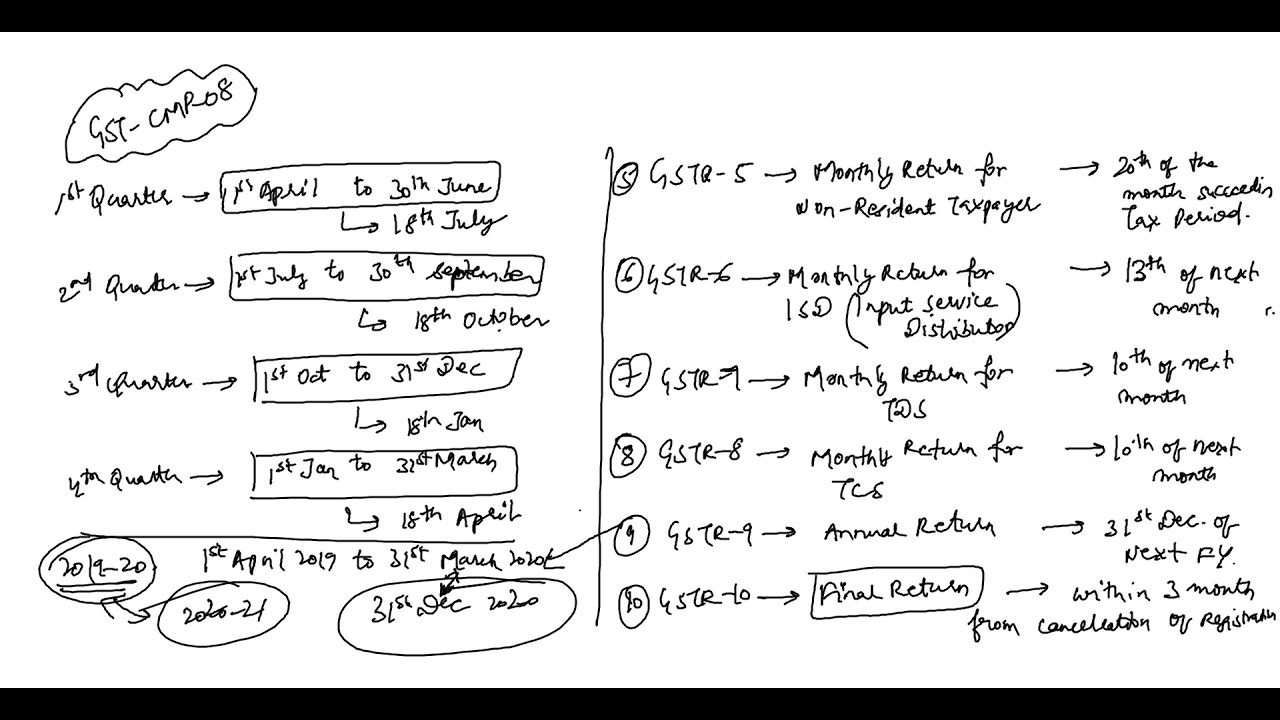 GST-CMP-08
1st Quarter → 1st April to 30th June
↳ 18th July
2nd Quarter → 1st July to 30th september
↳ 18th October
3rd Quarter → 1st Oct to 31st Dec
↳ 18th Jan
4th Quarter → 1st Jan to 31st March
↳ 18th April
2019-20 1st April 2019 to 31st March 2020
2020-21 31st Dec 2020
5 GSTR-5 → Monthly Return for → 20th of the
Non-Resident Taxpayer month succeedin
Tax Period.
6 GSTR-6 → Monthly Return for → 13th of next
ISD (Input Service month
Distributor)
7 GSTR-7 → Monthly Return for → 10th of next
TDS month
8 GSTR-8 → Monthly Return for → 10th of next
TCS month
9 GSTR-9 → Annual Return → 31st Dec. of
Next FY.
10 GSTR-10 → Final Return → within 3 month
from cancellation of registration